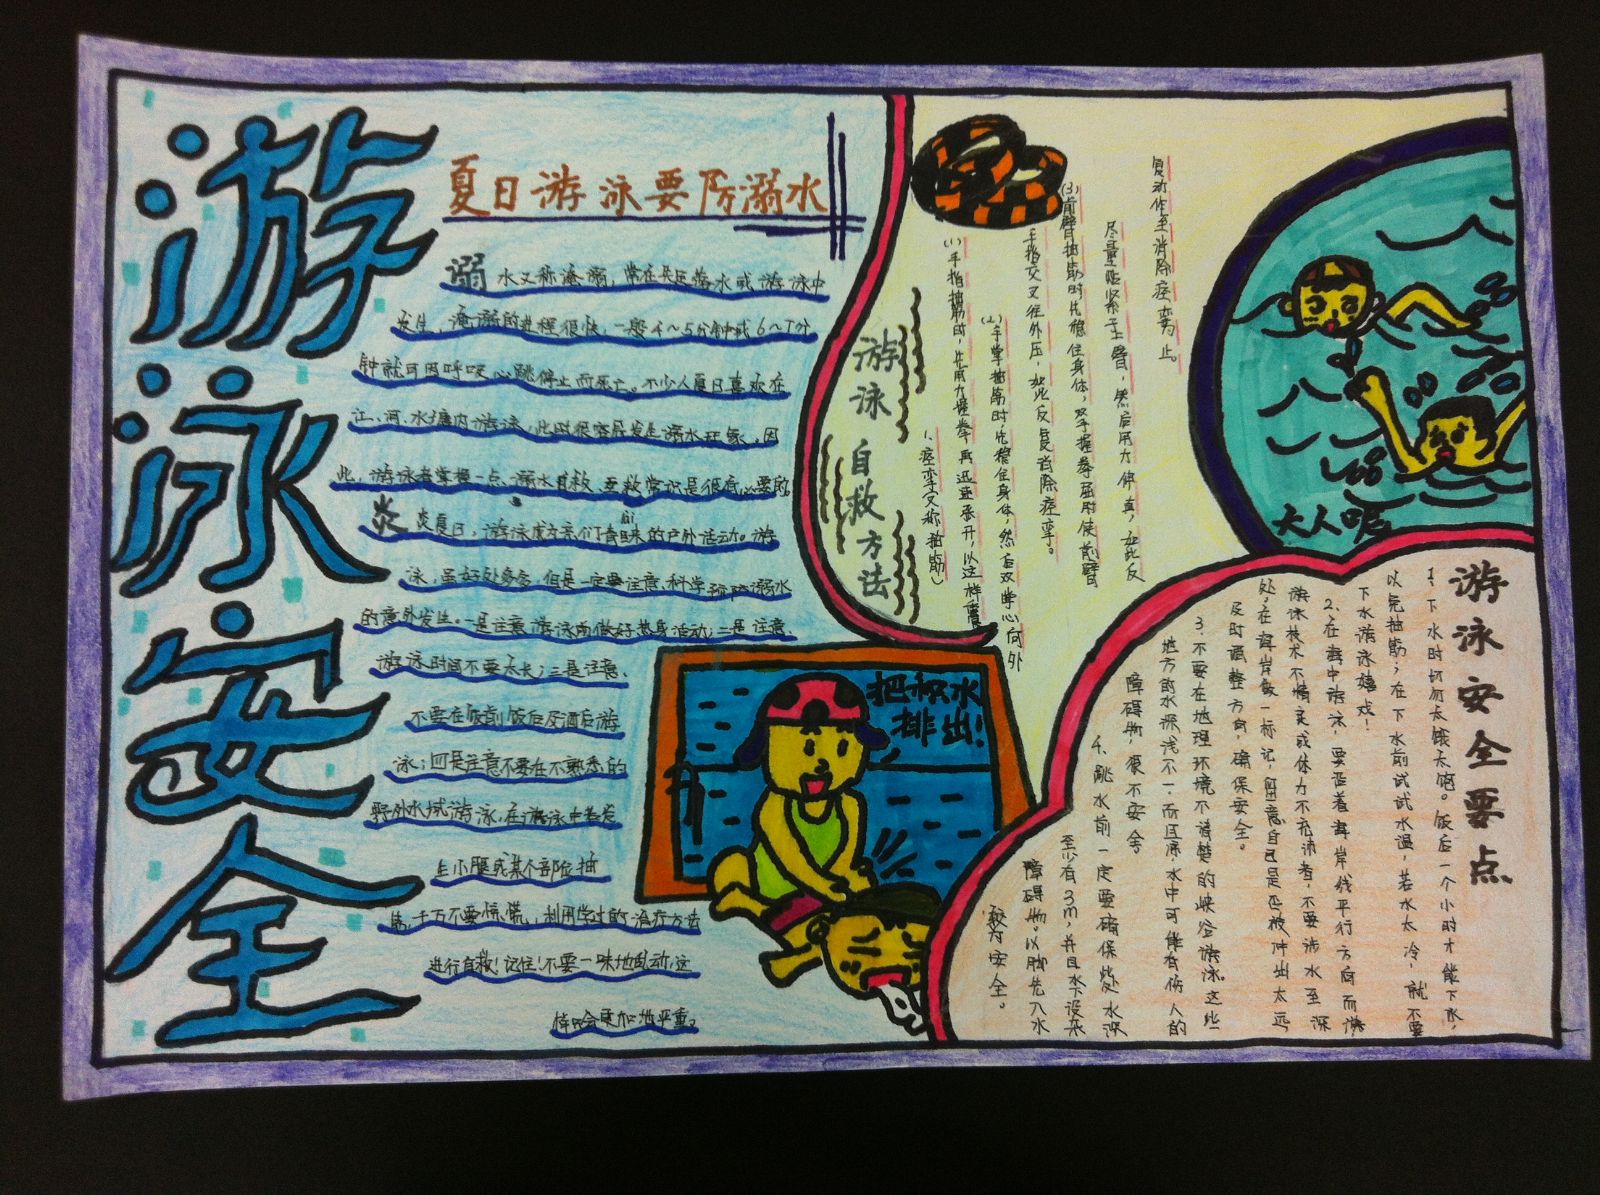 游泳安全
夏日游泳要防溺水
溺水又称淹溺，常在失足落水或游泳中
发生，淹溺的进程很快，一般4～5分钟或6～7分
钟就可因呼吸心跳停止而死亡。不少人夏日喜欢在
江、河、水塘内游泳，此时很容易发生溺水现象，因
此，游泳者掌握一点、溺水自救、互救常识是很有必要的。
炎炎夏日，游泳成立亲们青睐的户外活动。游
lài
泳，虽好处多多，但是一定要注意，科学预防溺水
的意外发生。一是注意游泳前做好热身活动；二是注意
游泳时间不要太长；三是注意、
不要在饭前饭后及酒后游
泳；四是注意不要在不熟悉的
野外水域游泳，在游泳中若发
生小腿或某个部位抽
筋，千万不要惊慌，利用学过的治疗方法
进行自救！记住！不要一味地乱动，这
样只会更加地严重。
游泳自救方法
1、痉挛（又称抽筋）
(1)手指抽筋时，先用力握拳再迅速张开，以这样重
复动作至消除痉挛为止。
(2)手掌抽筋时，先稳住身体，然后双掌心向外
手指交叉往外压，如此反复消除痉挛。
(3)前臂抽筋时先稳住身体，双手握拳屈肘使前臂
尽量贴紧于上臂，然后用力伸直，如此反
大人呢
把积水
排出！
游泳安全要点
1、下水时切勿太饿太饱。饭后一个小时才能下水，
以免抽筋；在下水前试试水温，若水太冷，就不要
下水游泳嬉戏！
2、在海中游泳，要沿着海岸线平行方向而游
游泳技术不精良或体力不充沛者，不要涉水至深
处，在海岸做一标记，留意自己是否被冲出太远
及时调整方向，确保安全。
3、不要在地理环境不清楚的峡谷游泳。这些
地方的水深浅不一，而且凉，水中可能有伤人的
障碍物，很不安全
4、跳水前一定要确保此处水深
至少有3m，并且水下没杂
障碍物。以脚先入水
较为安全。